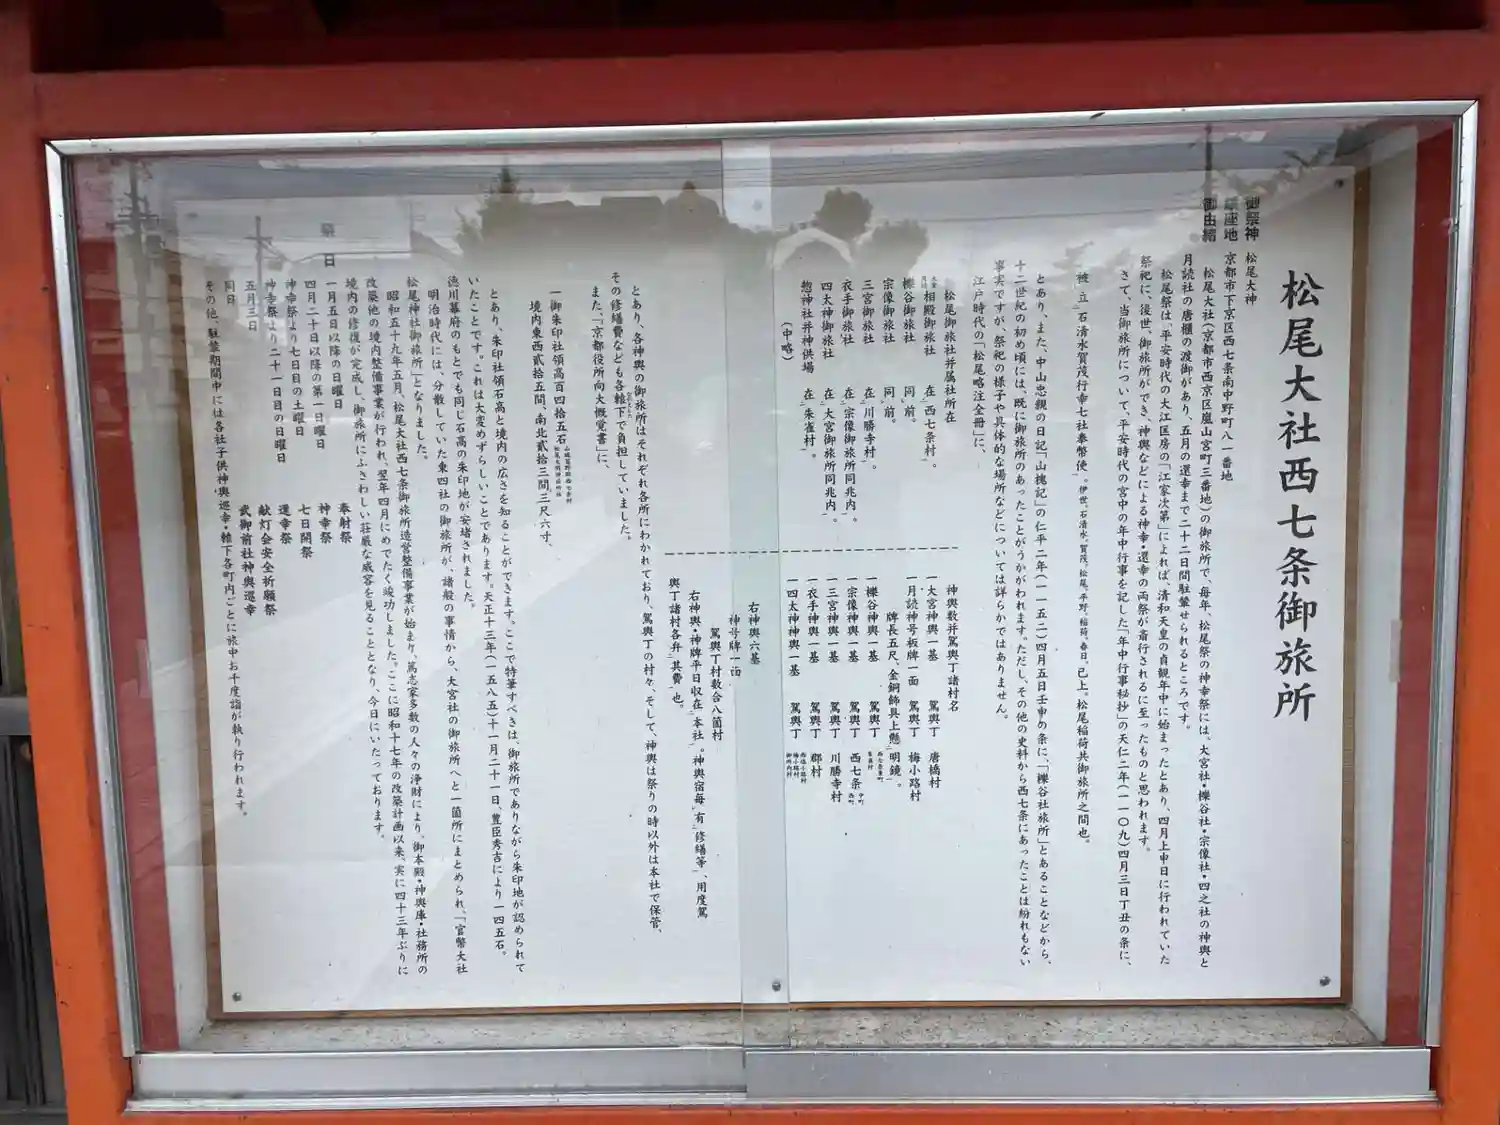 松尾大社西七条御旅所
御祭神 松尾大神
鎮座地 京都市下京区西七条南中野町八一番地
御由緒 松尾大社(京都市西京区嵐山宮町三番地)の御旅所で、毎年、松尾祭の神幸祭には、大宮社・櫟谷社・宗像社・四之社の神輿と
月読社の唐櫃の渡御があり、五月の還幸まで二十二日間駐輦せられるところです。
松尾祭は、平安時代の大江匡房の「江家次第」によれば、清和天皇の貞観年中に始まったとあり、四月上申日に行われていた
祭祀に、後世、御旅所ができ、神輿などによる神幸・還幸の両祭が斎行されるに至ったものと思われます。
さて、当御旅所について、平安時代の宮中の年中行事を記した「年中行事秘抄」の天仁二年(一一〇九)四月三日丁丑の条に、
被立石清水賀茂行幸七社奉幣使。伊世、石清水、賀茂、松尾、平野、稲荷、春日。已上。松尾稲荷共御旅所之間也。
とあり、また、中山忠親の日記「山槐記」の仁平二年(一一五二)四月五日壬申の条に、「櫟谷社旅所」とあることなどから、
十二世紀の初め頃には、既に御旅所のあったことがうかがわれます。ただし、その他の史料から西七条にあったことは紛れもない
事実ですが、祭祀の様子や具体的な場所などについては詳らかではありません。
江戸時代の「松尾略注全冊」に、
松尾御旅所并属社所在
相殿御旅社 在西七条村。
櫟谷御旅社 同前。
宗像御旅社 同前。
三宮御旅社 在川勝寺村。
衣手御旅社 在宗像御旅所同兆内。
四太神御旅社 在大宮御旅所同兆内。
惣神社并神供場 在朱雀村。
(中略)
神輿数并駕輿丁諸村名
一大宮神輿一基 駕輿丁 唐橋村
一月読神号板牌一面 駕輿丁 梅小路村
牌長五尺、金銅飾具上懸明鏡。
一櫟谷神輿一基 駕輿丁
一宗像神輿一基 駕輿丁 西七条
一三宮神輿一基 駕輿丁 川勝寺村
一衣手神輿一基 駕輿丁 郡村
一四太神神輿一基 駕輿丁
右神輿六基
神号牌一面
駕輿丁村数合八箇村
右神輿・神牌平日収在本社。神輿宿毎有修繕等、用度駕
輿丁諸村各弁其費也。
とあり、各神輿の御旅所はそれぞれ各所にわかれており、駕輿丁の村々、そして、神輿は祭りの時以外は本社で保管、
その修繕費なども各轅下で負担していました。
また、「京都役所向大概覚書」に、
一御朱印社領高百四拾五石
境内東西貳拾五間、南北貳拾三間三尺六寸、
とあり、朱印社領石高と境内の広さを知ることができます。ここで特筆すべきは、御旅所でありながら朱印地が認められて
いたことです。これは大変めずらしいことであります。天正十三年(一五八五)十一月二十一日、豊臣秀吉により一四五石。
徳川幕府のもとでも同じ石高の朱印地が安堵されました。
明治時代には、分散していた東四社の御旅所が、諸般の事情から、大宮社の御旅所へと一箇所にまとめられ、「官幣大社
松尾神社御旅所」となりました。
昭和五十九年五月、松尾大社西七条御旅所造営整備事業が始まり、篤志家多数の人々の浄財により、御本殿・神輿庫・社務所の
改築他の境内整備事業が行われ、翌年四月にめでたく竣功しました。ここに昭和十七年の改築計画以来、実に四十三年ぶりに
境内の修復が完成し、御旅所にふさわしい荘厳な威容を見ることとなり、今日にいたっております。
祭日
一月五日以降の日曜日 奉射祭
四月二十日以降の第一日曜日 神幸祭
神幸祭より七日目の土曜日 七日開祭
神幸祭より二十一日目の日曜日 還幸祭
五月三日 献灯会安全祈願祭
同日 武御前社神輿巡幸
その他、駐輦期間中には各社子供神輿巡幸・轅下各町内ごとに旅中お千度詣が執り行われます。